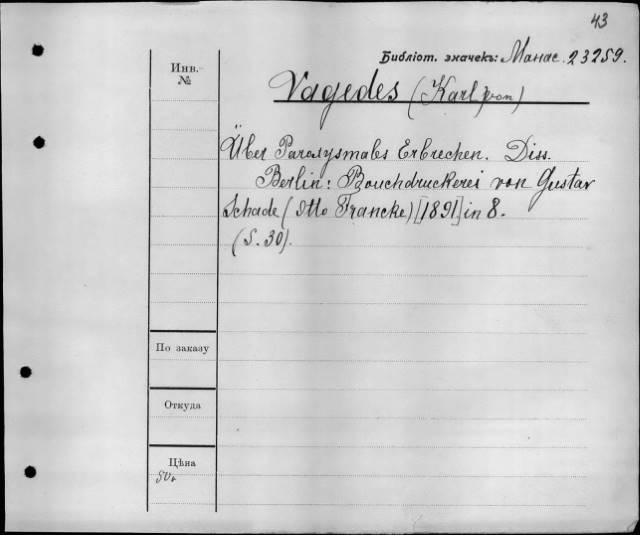 43
Библіот. значекъ: Манас. 23259.
Инв. №
Vagedes (Karl von)
Über Paroxysmales Erbrechen. Diss.
Berlin: Bouchdruckerei von Gustav
Schade (Otto Francke) [1891] in 8.
(S. 30).
По заказу
Откуда
Цѣна